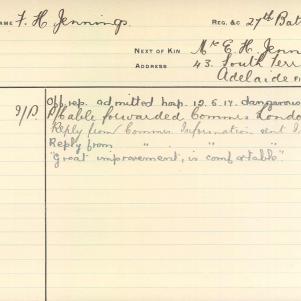 NAME F. H. Jennings. REG. &C 27th Bat
NEXT OF KIN Mr E. H. Jenn
ADDRESS 43. South Terr
Adelaide
Off rep. admitted hosp. 12.6.17. dangerous
Cable forwarded Commrs London
Reply from Commrs Information sent
Reply from " " "
"Great improvement, is comfortable."